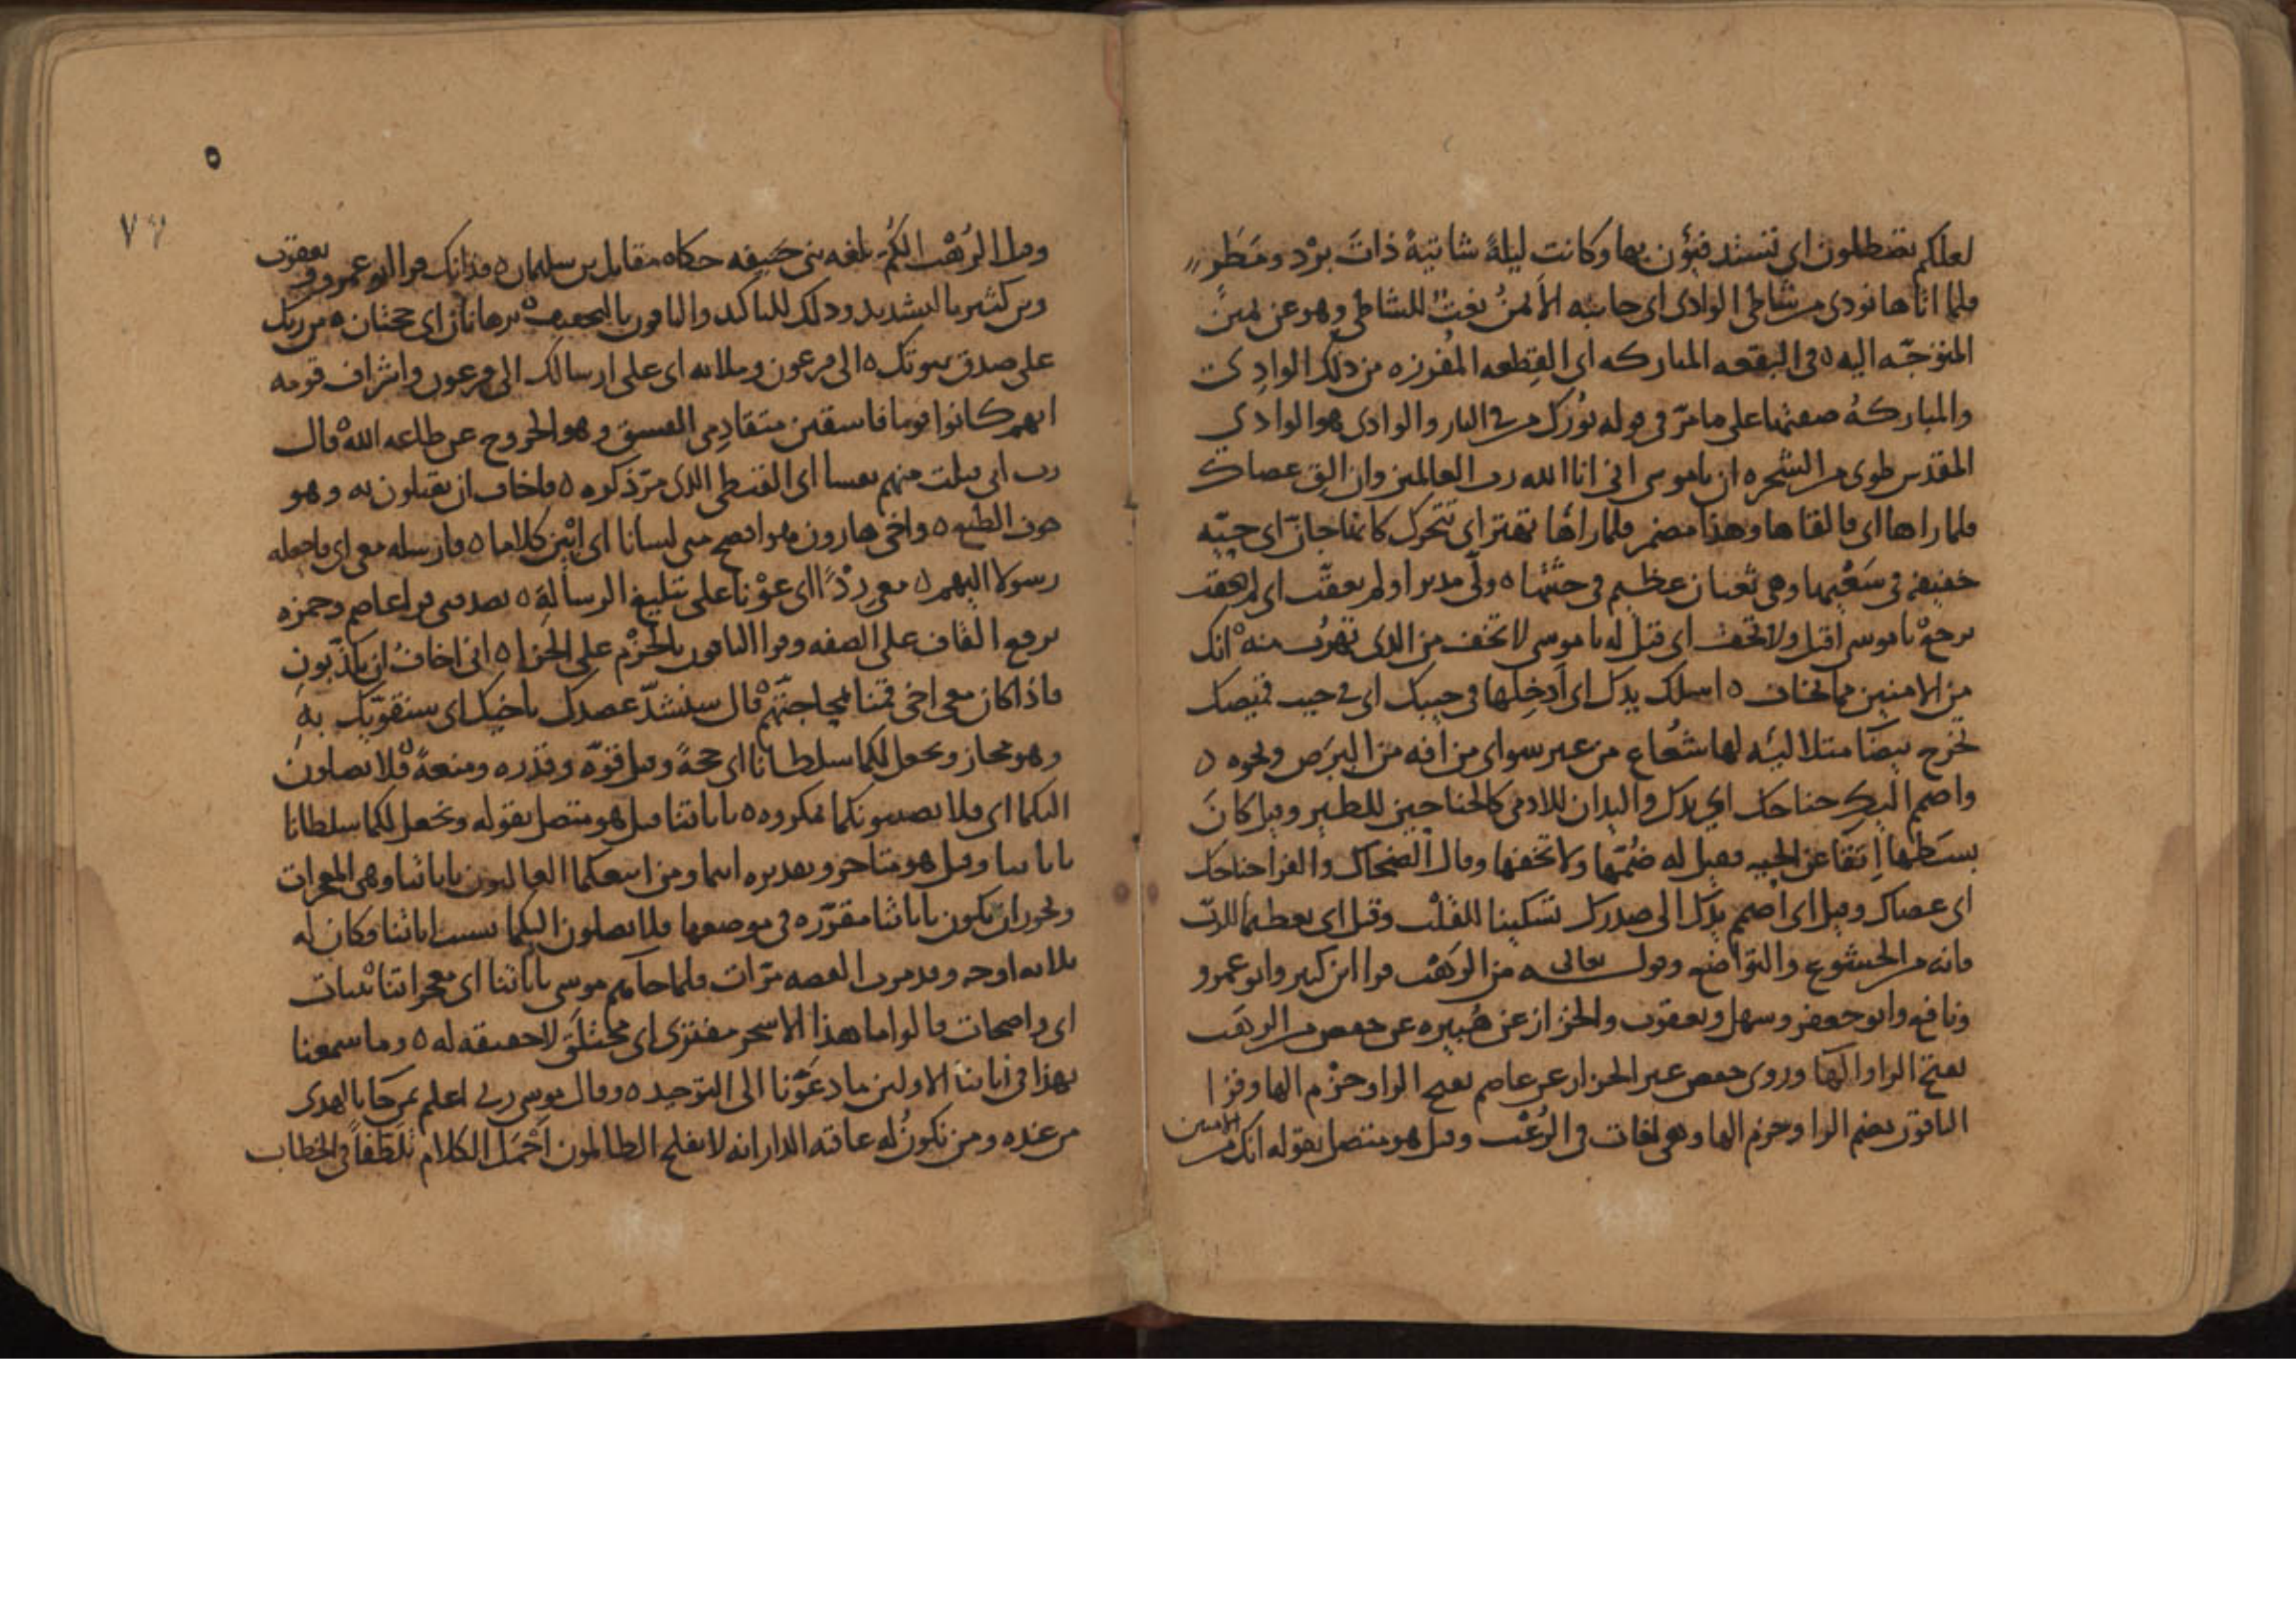 لعلكم تصطلون اى تستدفئون بها وكانت ليلةً شاتيةً ذاتَ برْد ومَطَر
فلما اتاها نودى من شاطى الوادى اى جانبه الأيمنُ نعتٌ للشاطى وهو عن يمين
المتوجّه اليه ه فى البقعه المباركه اى القطعه المفروزه من ذلك الوادى
والمباركةُ صفتها على ما مرّ فى قوله بُورك من فى النار والوادى هو الوادى
المقدس طوى من الشجره ان ياموسى انى انا الله رب العالمين وان الق عصاك
فلما راها اى فالقاها وهذا مضمر فلما راها تهتز اى تتحرك كانها جانّ اى حيّه
خفيفه فى سَعْيها وهى ثعبان عظيم فى جثتها ه ولّى مدبرا ولم يعقّب اى لم
يرجعْ ياموسى اقبل ولا تخف اى قيل له ياموسى لا تخف من الذى تهرُب منه انك
من الامنين مما تخاف ه اسلك يدك اى أدخِلها فى جيبك اى فى جيب قميصك
تخرج بيضا لها شعاع من غير سو اى من افه من البرَص ونحوه ه
واضمم اليك جناحك اى يدك واليدان للادمى كالجناحين للطير وقيل كانَ
بسَطها اتقا عن الحيه فقيل له ضُمّها ولا تخفها وقال الضحاك والفرا جناحك
اى عصاك وقيل اى اضمم يدك الى صدرك تسكينا للقلب وقيل اى
فانه من الخشوع والتواضع وقوله تعالى من الرَهْب قرا ابن كثير وابو عمرو
ونافع وابو جعفر وسهل ويعقوب والخزاز عن هُبيره عن حفص من الرهَب
بفتح الرا والها وروى حفص غير الخزاز عن عاصم بفتح الرا وجزْم الها وقرا
الباقون بضم الرا وجزم الها وهى لغات فى الرُعْب وقيل هو متصل بقوله انك من الامنين
وقيل الرُهْب الكُمّ بلغه بنى حَنِيفه حكاه مقاتل بن سليمان ه فذانك قرا ابو عمرو ويعقوب
وبن كثير بالتشديد وذلك للتاكيد والباقون بالتخفيف برهانان اى حجتان ه من ربك
على صدق نبوتك ه الى فرعون وملائه اى على ارسالك الى فرعون واشراف قومه
انهم كانوا قوما فاسقين متقادِمى الفسق وهو الخروج عن طاعه الله قال
رب انى قتلت منهم نفسا اى القبطى الذى مرّ ذكره ه فاخاف ان يقتلون به وهو
خوف الطبع ه واخى هارون هو افصح منى لسانا اى ابْيَن كلاما ه فارسله معى اى فاجعله
رسولا اليهم ه معى رِدْءًا اى عوْنا على تبليغ الرسالة ه يصدقنى قرا عاصم وحمزه
برفع القاف على الصفه وقرا الباقون بالجزْم على الجزا ه انى اخافُ ان يكذّبونِ
فاذا كان معى اخى قمنا بمحاجتهم قال سنشدّ عضدك باخيك اى سنقوّيك به
وهو مجاز ونجعل لكما سلطانا اى حجةً وقيل قوّه وقدره ومنعةً فلا يصلون
اليكما اى فلا يصيبونكما بمكروه ه باياتنا قيل هو متصل بقوله ونجعل لكما سلطانا
باياتنا وقيل هو متاخر وتقديره انتما ومن اتبعكما الغالبون باياتنا وهى المعجزات
ويجوز ان يكون باياتنا مقرّره فى موضعها فلا يصلون اليكما بسبب اياتنا فكان له
ثلاثه اوجه وقد مرت القصه مرّات فلما جاهم موسى باياتنا اى معجزاتنا بينات
اى واضحات قالوا ما هذا الا سحر مفترى اى مختلَق لا حقيقه له ه وما سمعنا
بهذا فى ابائنا الاولين ما دعَوْتنا الى التوحيد ه وقال موسى ربى اعلم بمن جا بالهدى
من عنده ومن تكونُ له عاقبه الدار انه لا يفلح الظالمون اَجْمَل الكلام تلطفاً فى الخطاب